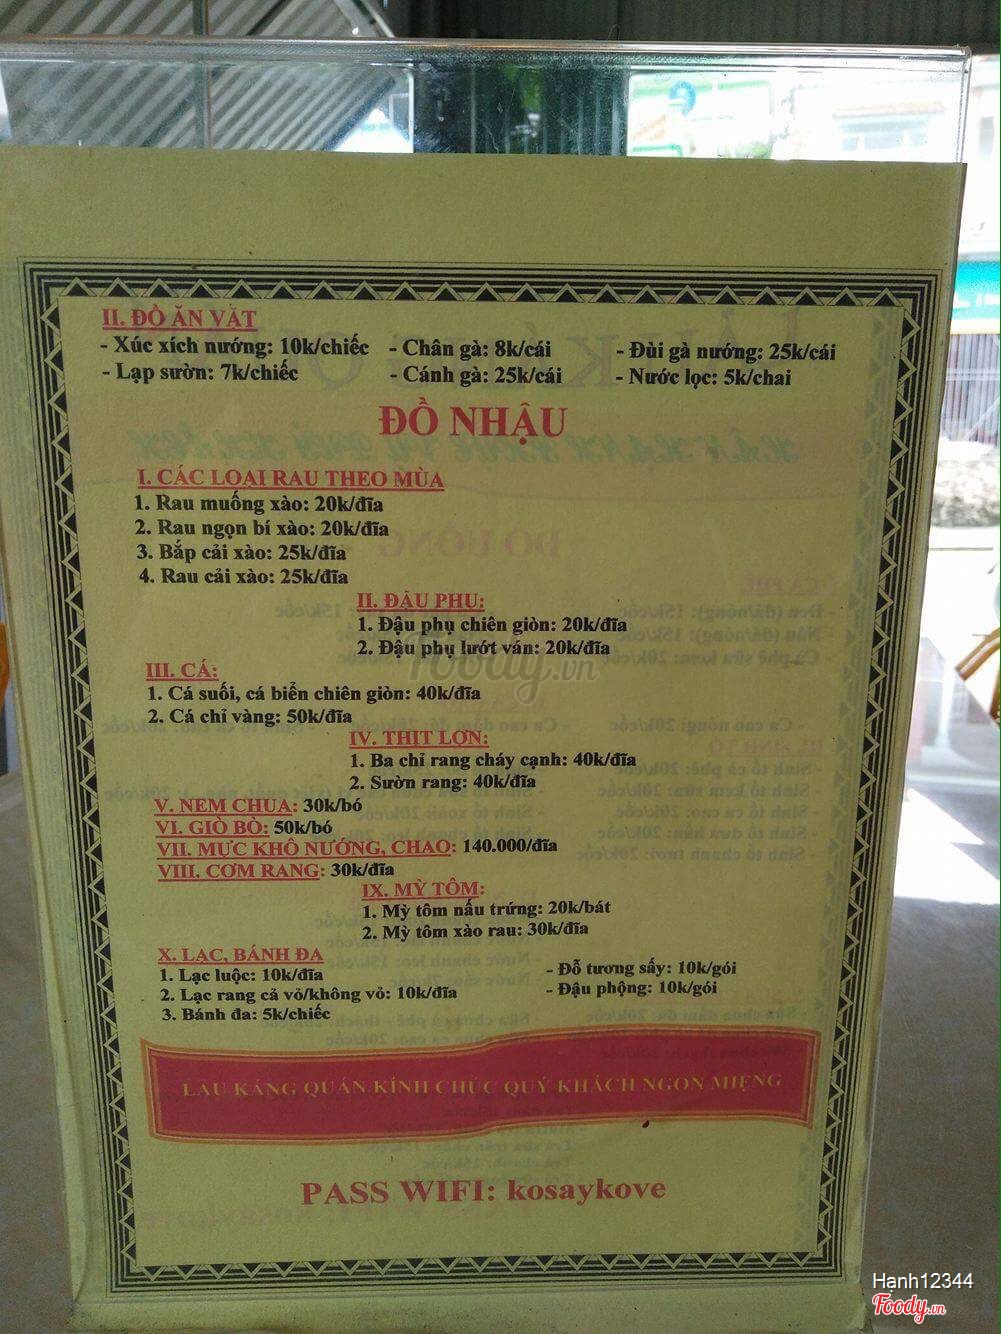 II. ĐỒ ĂN VẶT
- Xúc xích nướng: 10k/chiếc - Chân gà: 8k/cái - Đùi gà nướng: 25k/cái
- Lạp sườn: 7k/chiếc - Cánh gà: 25k/cái - Nước lọc: 5k/chai
ĐỒ NHẬU
I. CÁC LOẠI RAU THEO MÙA
1. Rau muống xào: 20k/đĩa
2. Rau ngọn bí xào: 20k/đĩa
3. Bắp cải xào: 25k/đĩa
4. Rau cải xào: 25k/đĩa
II. ĐẬU PHỤ:
1. Đậu phụ chiên giòn: 20k/đĩa
2. Đậu phụ lướt ván: 20k/đĩa
III. CÁ:
1. Cá suối, cá biển chiên giòn: 40k/đĩa
2. Cá chỉ vàng: 50k/đĩa
IV. THỊT LỢN:
1. Ba chỉ rang cháy cạnh: 40k/đĩa
2. Sườn rang: 40k/đĩa
V. NEM CHUA: 30k/bó
VI. GIÒ BÒ: 50k/bó
VII. MỰC KHÔ NƯỚNG, CHAO: 140.000/đĩa
VIII. CƠM RANG: 30k/đĩa
IX. MỲ TÔM:
1. Mỳ tôm nấu trứng: 20k/bát
2. Mỳ tôm xào rau: 30k/đĩa
X. LẠC, BÁNH ĐA
1. Lạc luộc: 10k/đĩa - Đỗ tương sấy: 10k/gói
2. Lạc rang cả vỏ/không vỏ: 10k/đĩa - Đậu phộng: 10k/gói
3. Bánh đa: 5k/chiếc
LAU KÁNG QUÁN KÍNH CHÚC QUÝ KHÁCH NGON MIỆNG
PASS WIFI: kosaykove
Foody.vn
Hạnh12344
Foody.vn